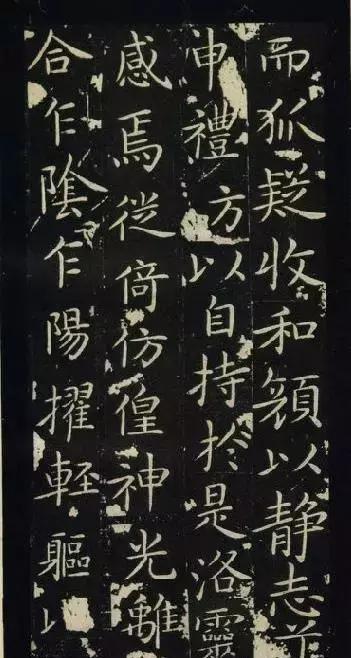 而狐疑收和顏以静志兮
申禮方以自持於是洛靈
感焉徙倚仿偟神光離
合乍陰乍陽擢軽軀以